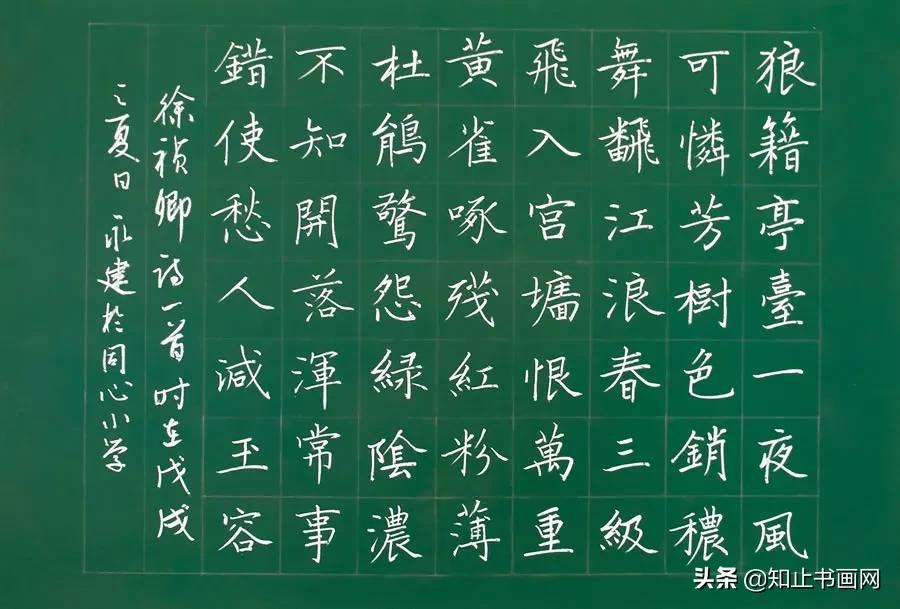 狼籍亭臺一夜風
可憐芳樹色銷穠
舞飜江浪春三級
飛入宮墻恨萬重
黃雀啄殘紅粉薄
杜鵑驚怨綠陰濃
不知開落渾常事
錯使愁人減玉容
徐禎卿詩一首时在戊戌
之夏日永建於同心小学
头条@知止书画网